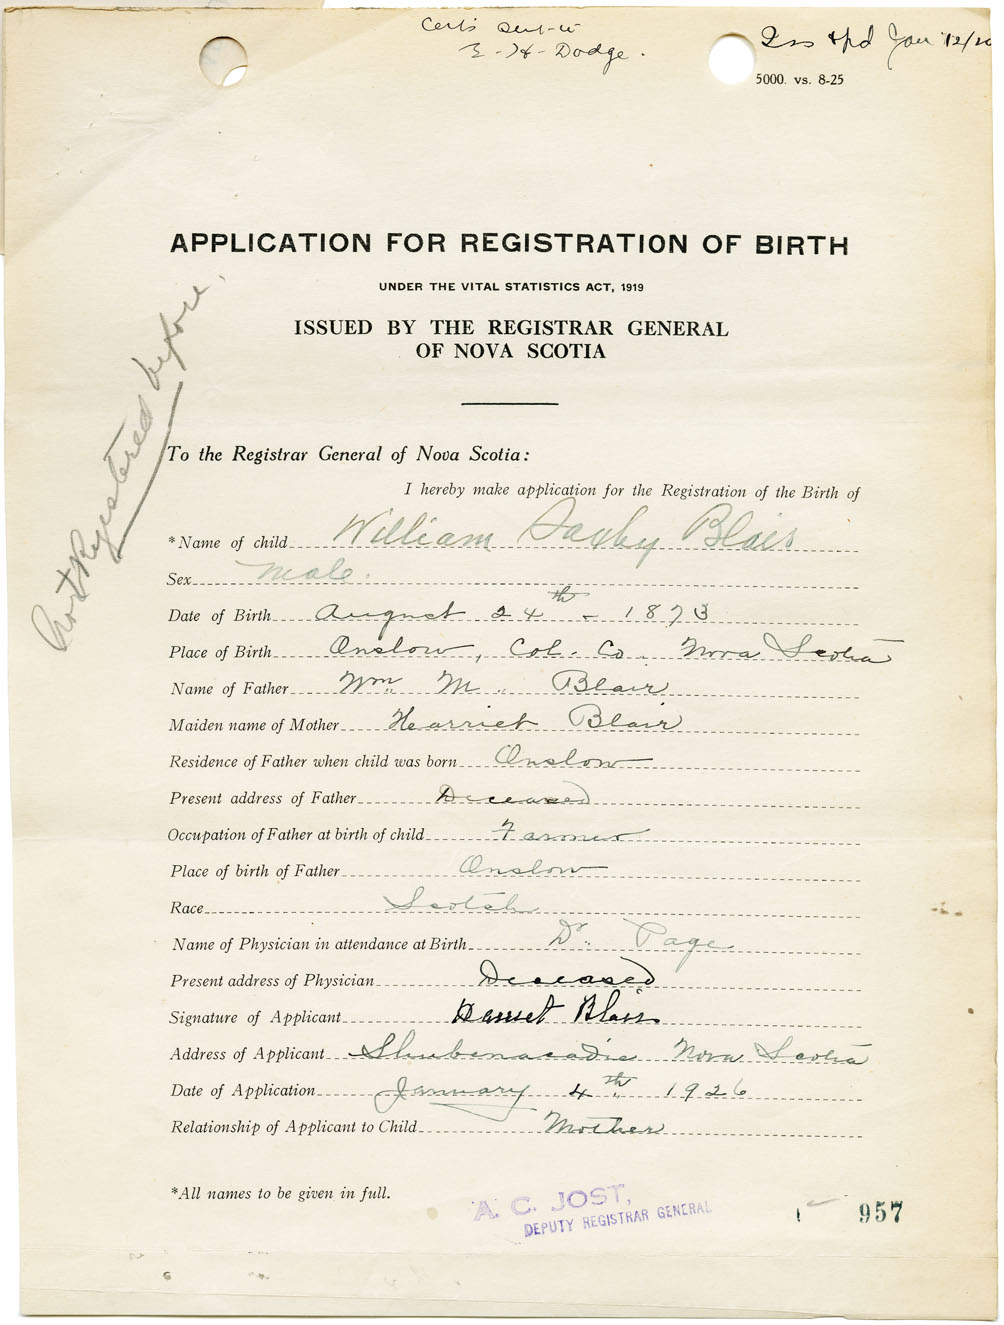 Certs sent to
E-H-Dodge.
Iss & pd Jan 12/26
5000. vs. 8-25
APPLICATION FOR REGISTRATION OF BIRTH
UNDER THE VITAL STATISTICS ACT, 1919
ISSUED BY THE REGISTRAR GENERAL
OF NOVA SCOTIA
Not Registered before.
To the Registrar General of Nova Scotia:
I hereby make application for the Registration of the Birth of
*Name of child William Saxby Blair
Sex Male.
Date of Birth August 24th - 1873
Place of Birth Onslow, Col. Co. Nova Scotia
Name of Father Wm. M. Blair
Maiden name of Mother Hearriet Blair
Residence of Father when child was born Onslow
Present address of Father Deceased
Occupation of Father at birth of child Farmer
Place of birth of Father Onslow
Race Scotch
Name of Physician in attendance at Birth Dr. Page
Present address of Physician Deceased
Signature of Applicant Harriet Blair
Address of Applicant Shubenacadie Nova Scotia
Date of Application January 4th 1926
Relationship of Applicant to Child Mother
*All names to be given in full.
A. C. JOST,
DEPUTY REGISTRAR GENERAL
957